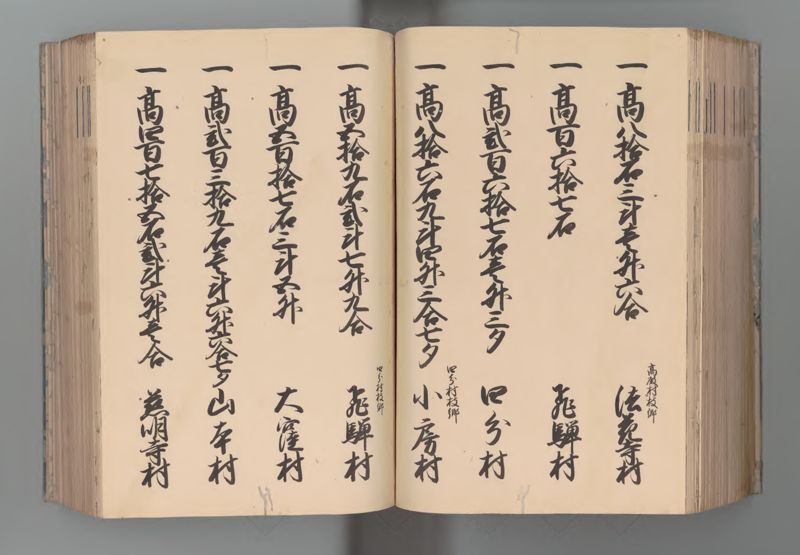 一 高八拾石三斗壱升六合 高殿村枝郷 法花寺村
一 高百六拾七石 飛驒村
一 高弐百六拾七石壱升三夕 四分村
一 高八拾六石九斗四升三合七夕 四分村枝郷 小房村
一 高五拾九石弐斗七升九合 四分村枝郷 飛驒村
一 高五百拾七石三斗五升 大窪村
一 高弐百三拾九石壱斗六升六合七夕 山本村
一 高四百七拾五石弐斗六升壱合 慈明寺村